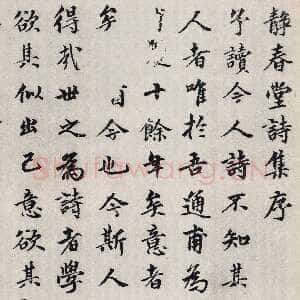 靜春堂詩集序
予讀今人詩不知其
人者唯於吾通甫為
十餘年矣意者
矣 今也今斯人
得哉世之為詩者學
欲其似出己意欲其
Shufawang.CN